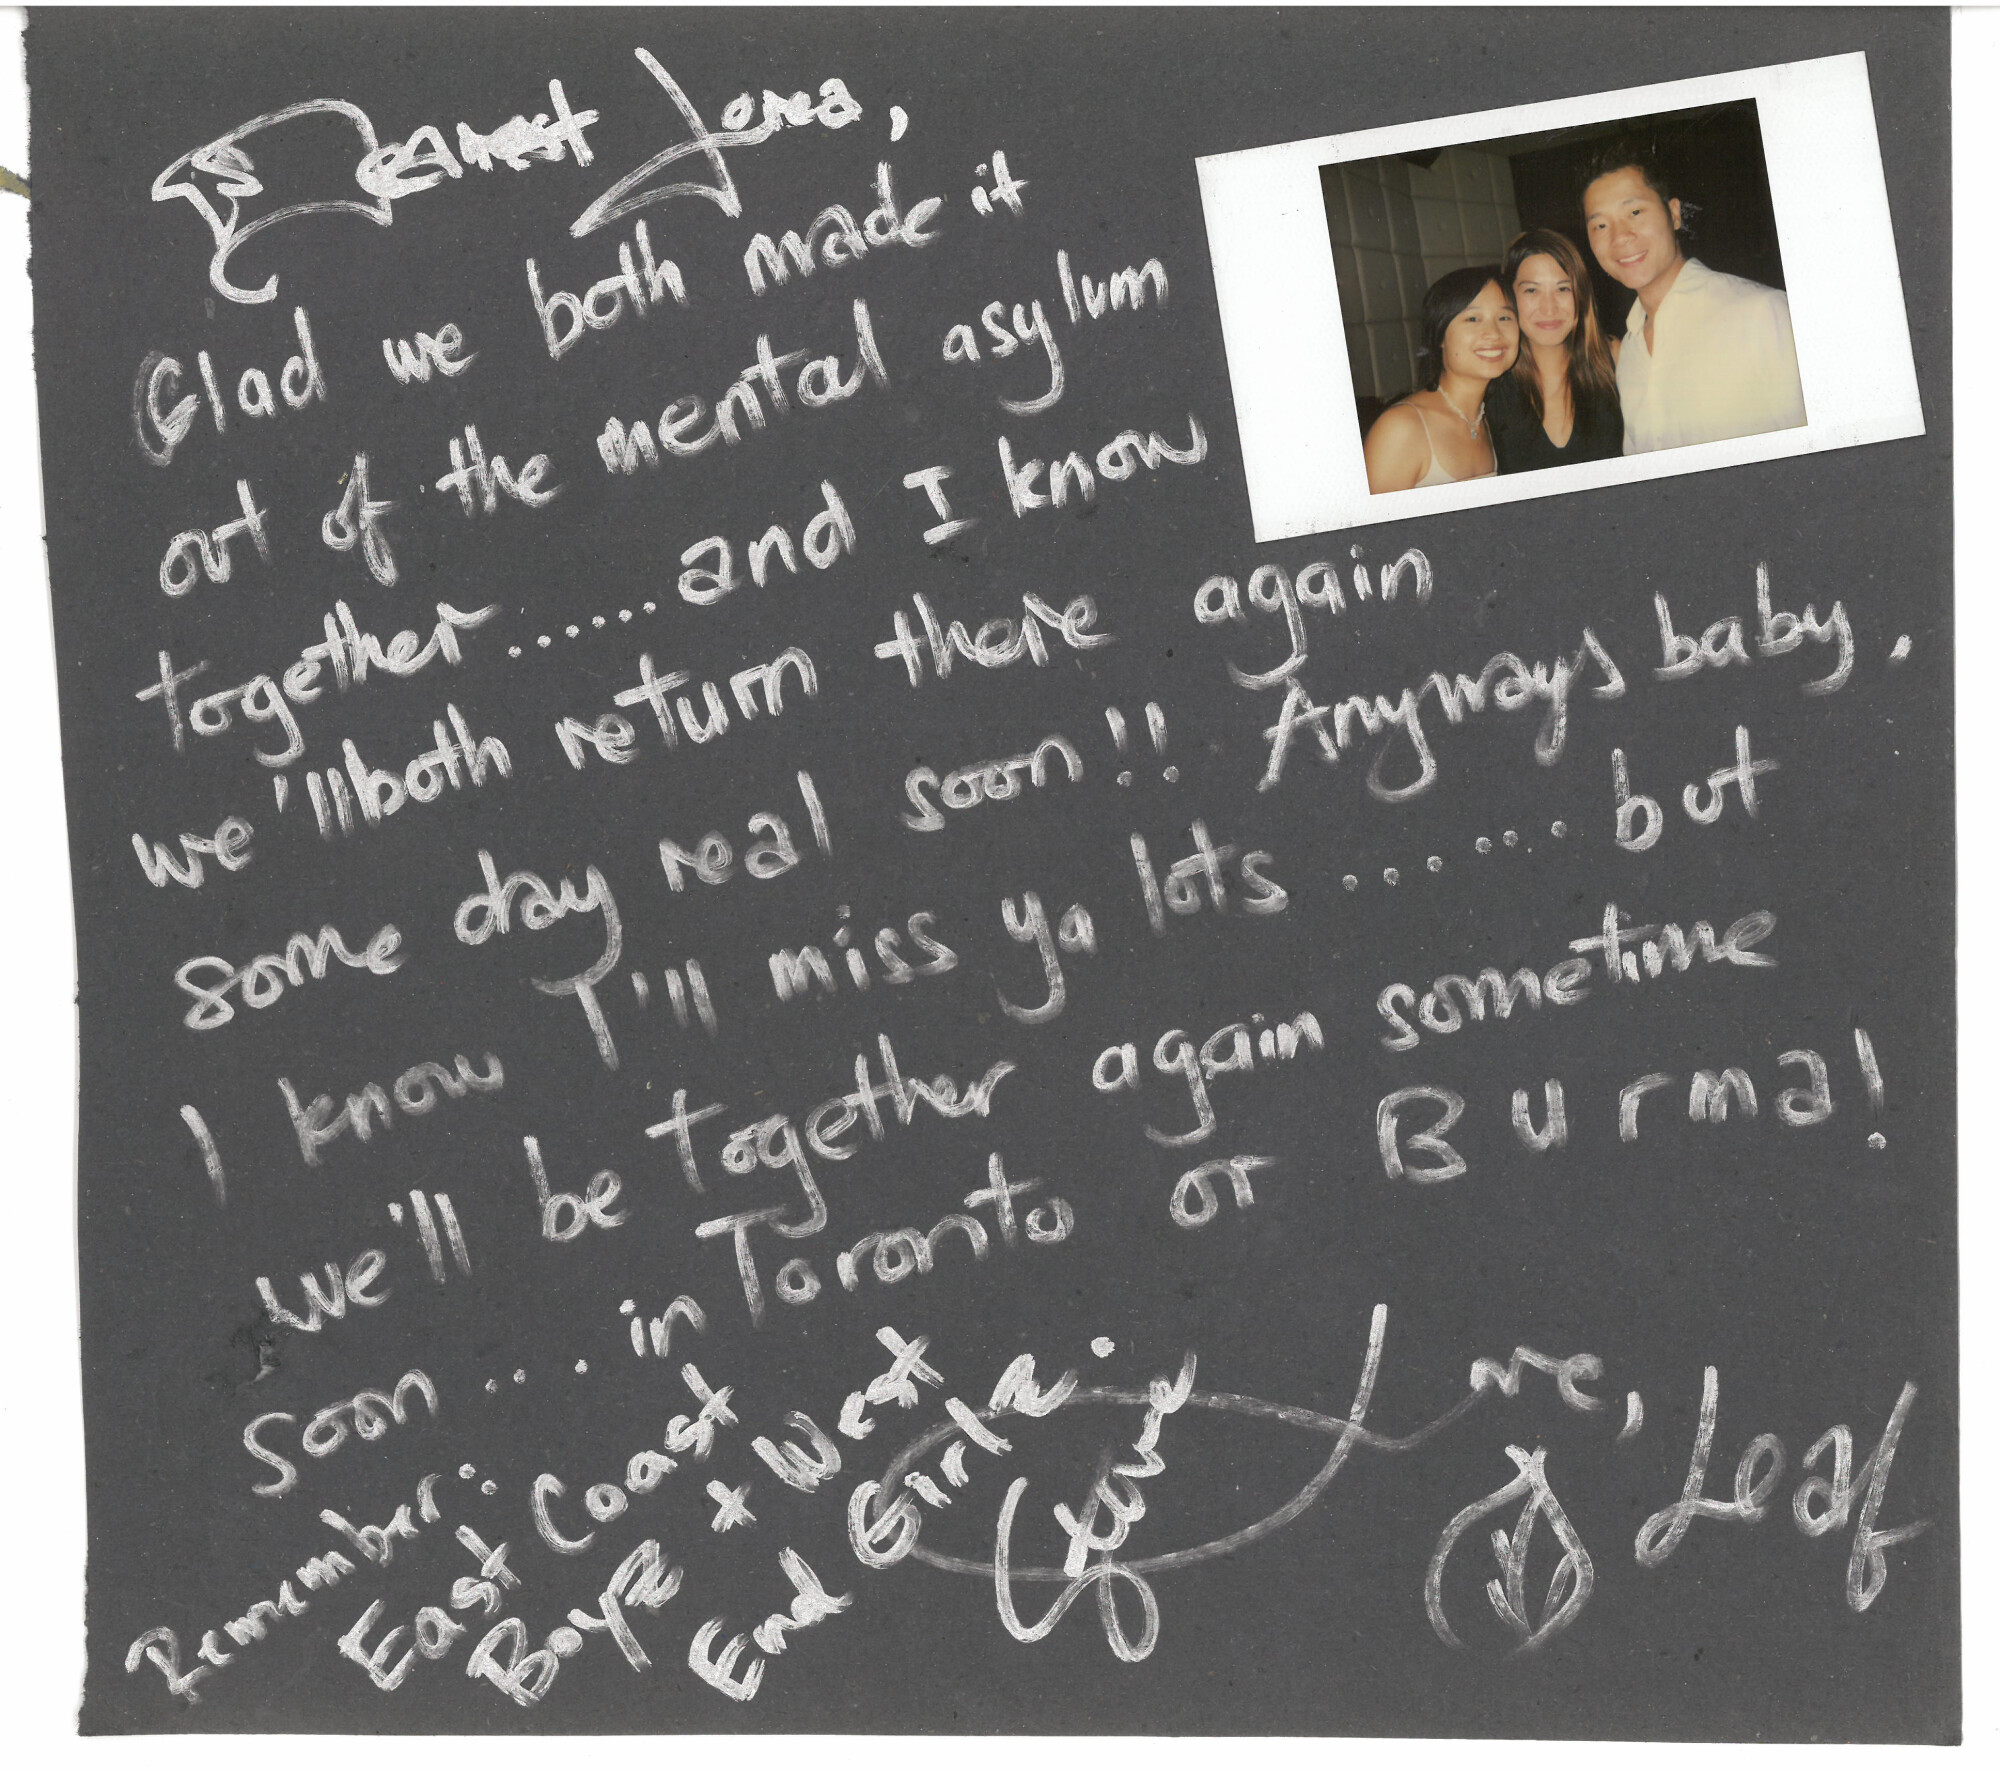 Dearest Jerea,
Glad we both made it
out of the mental asylum
together......and I know
we'll both return there again
some day real soon!! Anyways baby,
I know I'll miss ya lots ....... but
we'll be together again sometime
soon... in Toronto or Burma!
Remember:
East Coast
Boyz & West
End Girlz.
Love,
Leaf